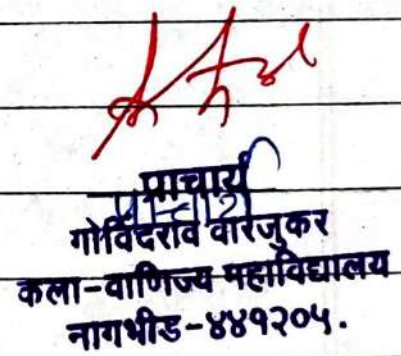 प्राचार्य
गोविंदराव वारजुकर
कला-वाणिज्य महाविद्यालय
नागभीड-४४१२०५.